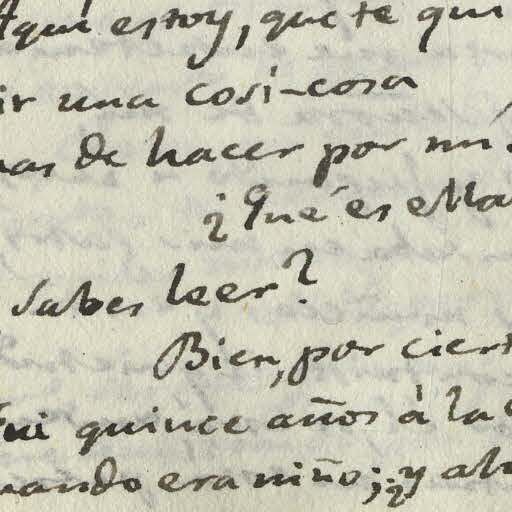 Aqui estoy, que te qui
ir una cosi-cosa
has de hacer por mí.
¿Qué es ella
Sabes leer?
Bien, por ciert
Fui quince años á la
uando era niño; ¿y ah